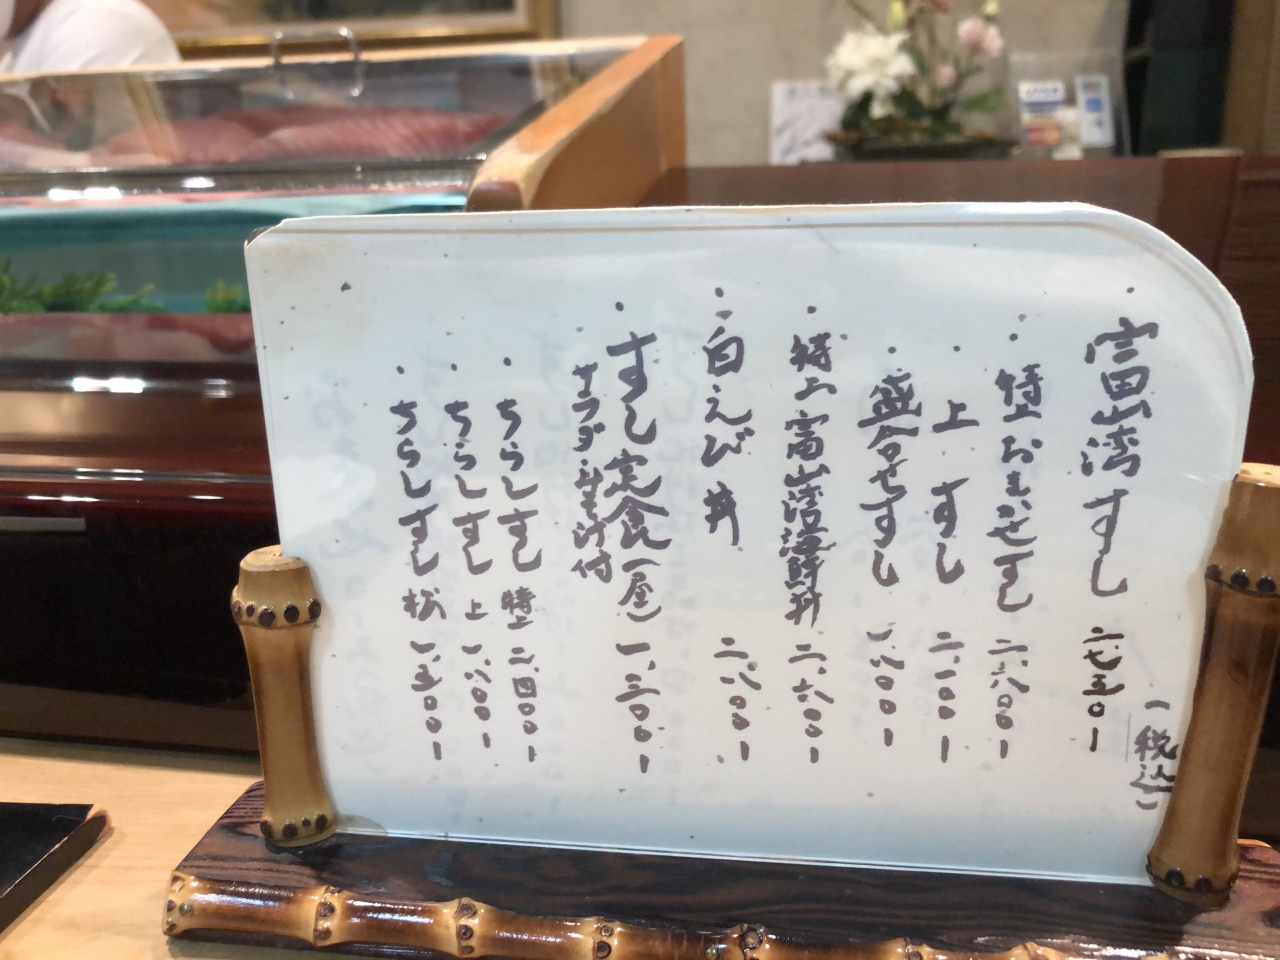 ・富山湾すし 二七五〇ー
（税込）
・特上おまかせすし 二、八〇〇ー
・上すし 二、一〇〇ー
・盛合せすし 一、八〇〇ー
・特上富山湾海鮮丼 二、六〇〇ー
・白えび丼 二、八〇〇ー
・すし定食（昼） 一、三〇〇ー
サラダ・みそ汁付
・ちらしすし 特上 二、四〇〇ー
・ちらしすし 上 一、八〇〇ー
・ちらしすし 松 一、五〇〇ー